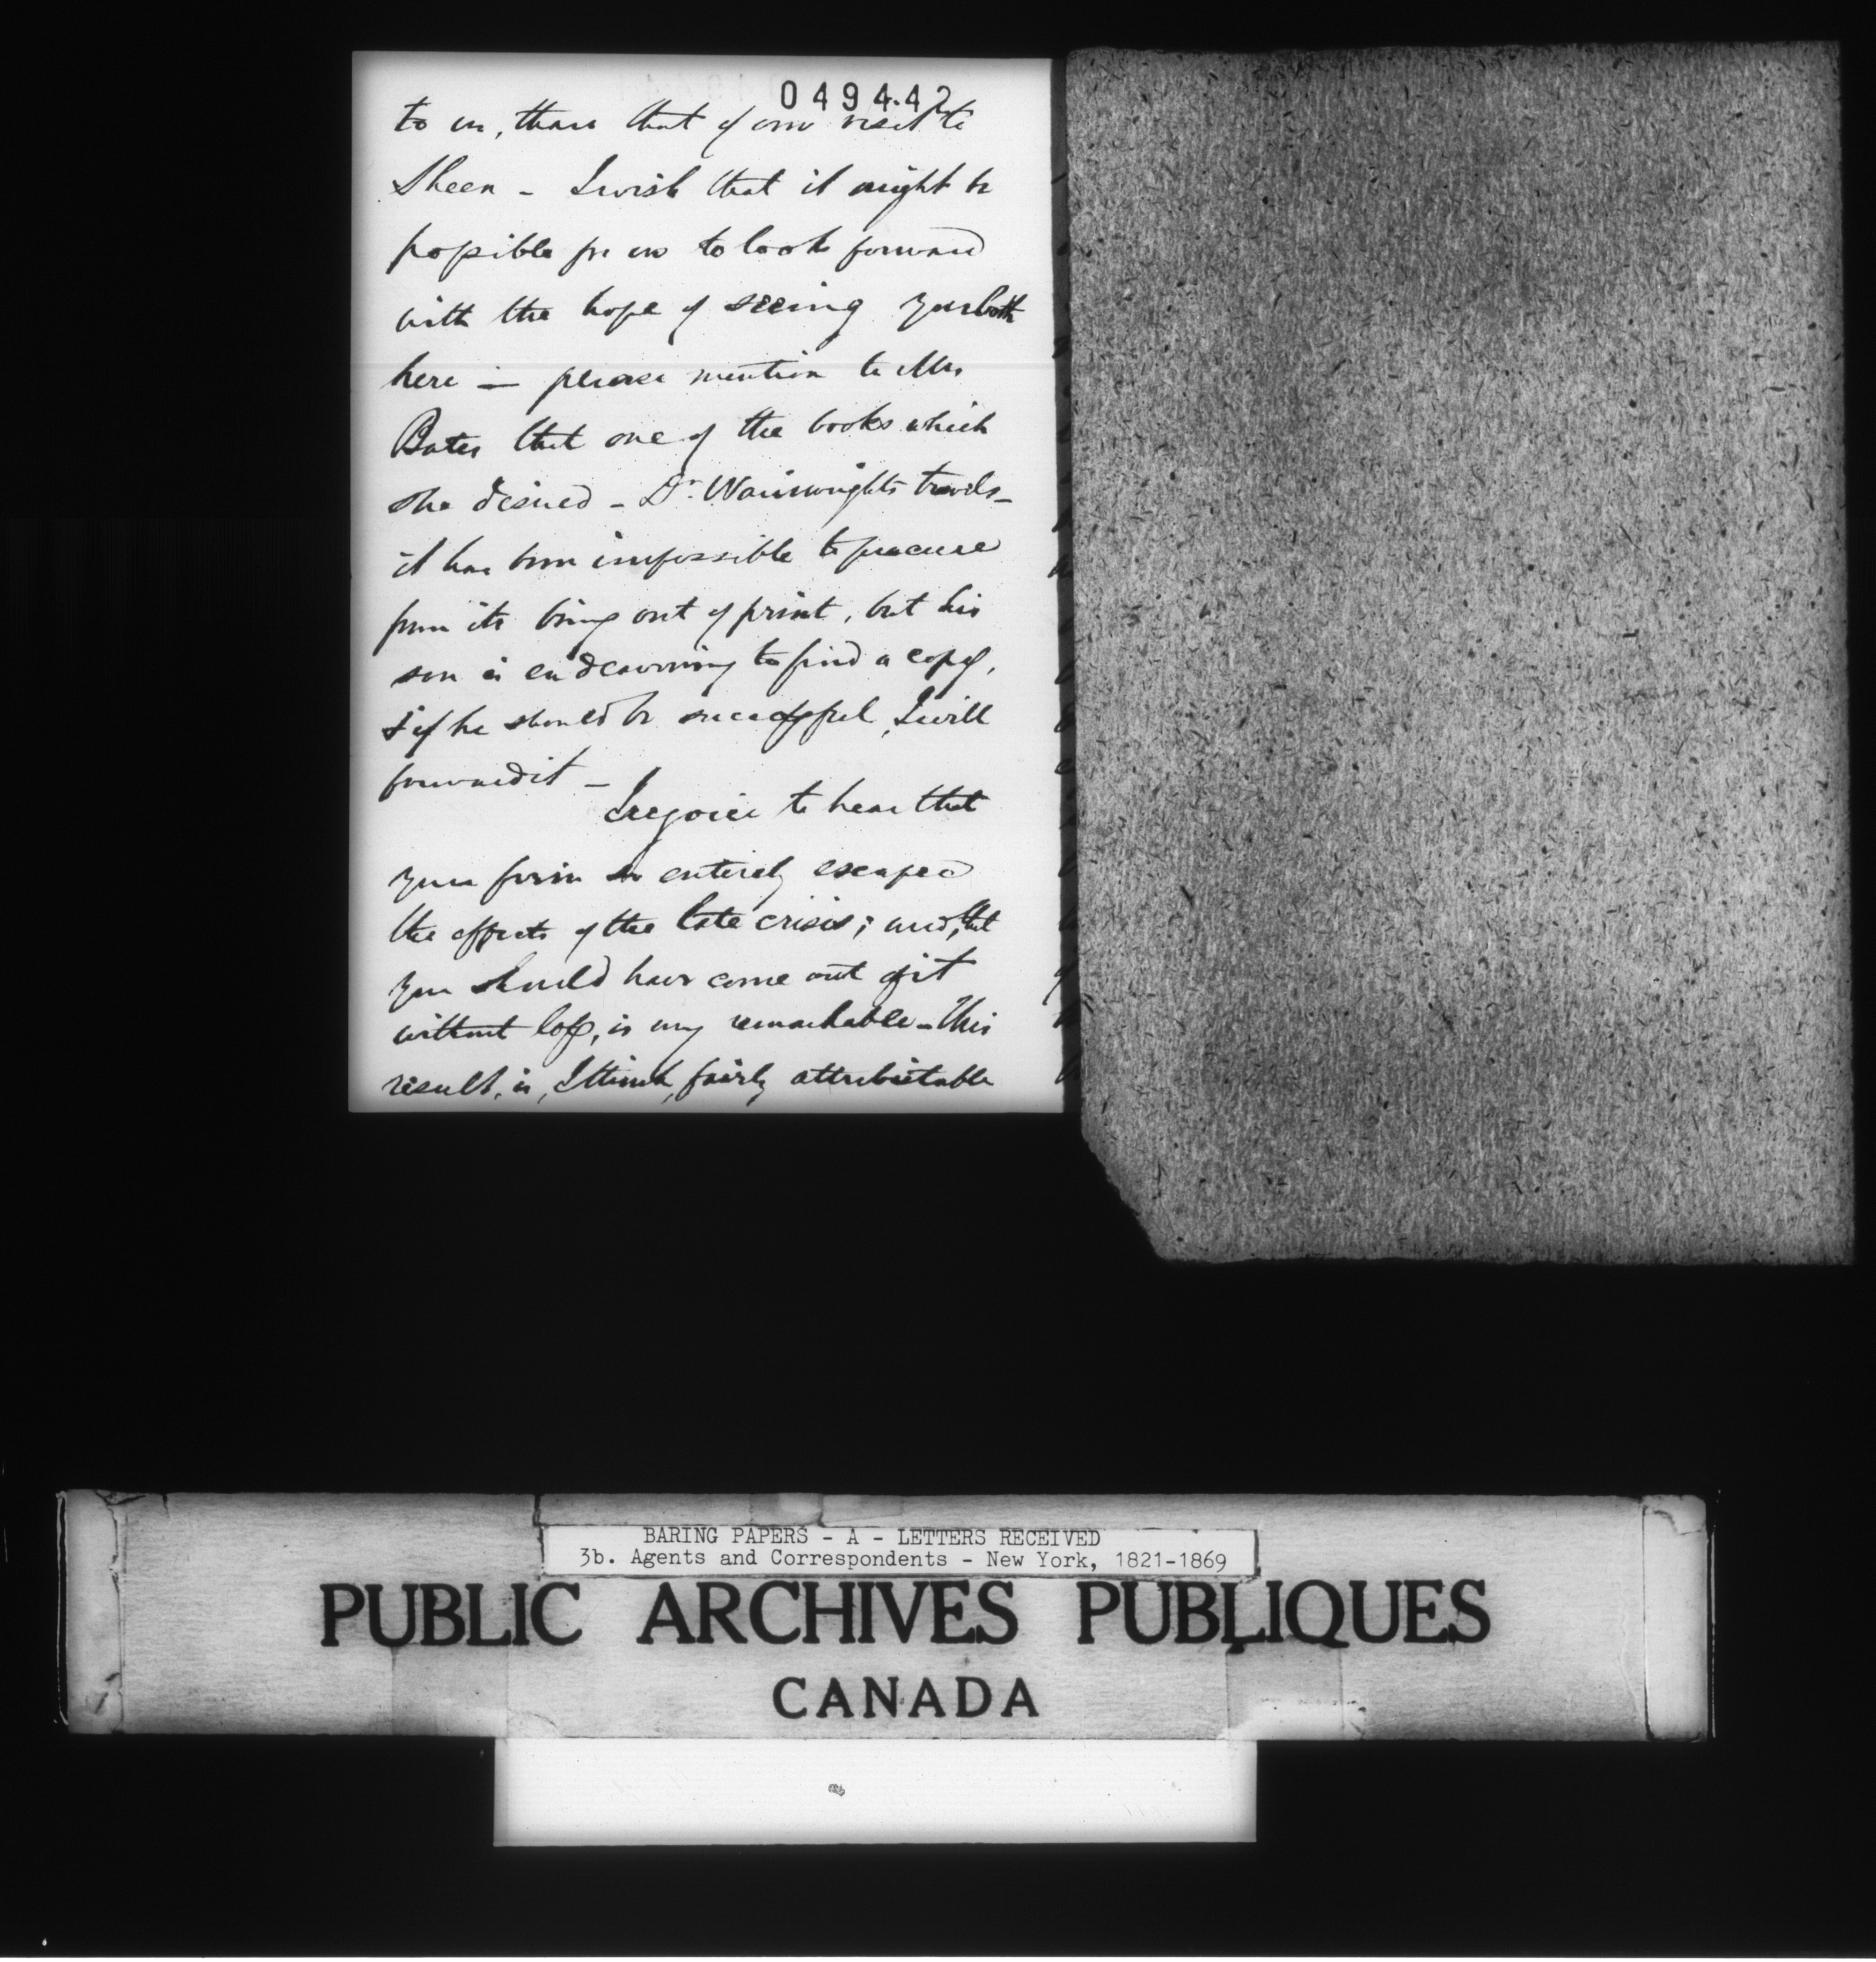 049442
to us, than that of our visit to
Sheen - I wish that it might be
possible for us to look forward
with the hope of seeing you both
here - please mention to Mrs
Bates that one of the books which
she desired - Dr. Wainwrights travels -
it has been impossible to procure
from its being out of print, but his
son is endeavouring to find a copy,
& if he should be successful, I will
forward it -
I rejoice to hear that
your firm so entirely escaped
the effects of the late crisis; and, that
you should have come out of it
without loss, is very remarkable - This
result, is, I think, fairly attributable
BARING PAPERS - A - LETTERS RECEIVED
3b. Agents and Correspondents - New York, 1821-1869
PUBLIC ARCHIVES PUBLIQUES
CANADA